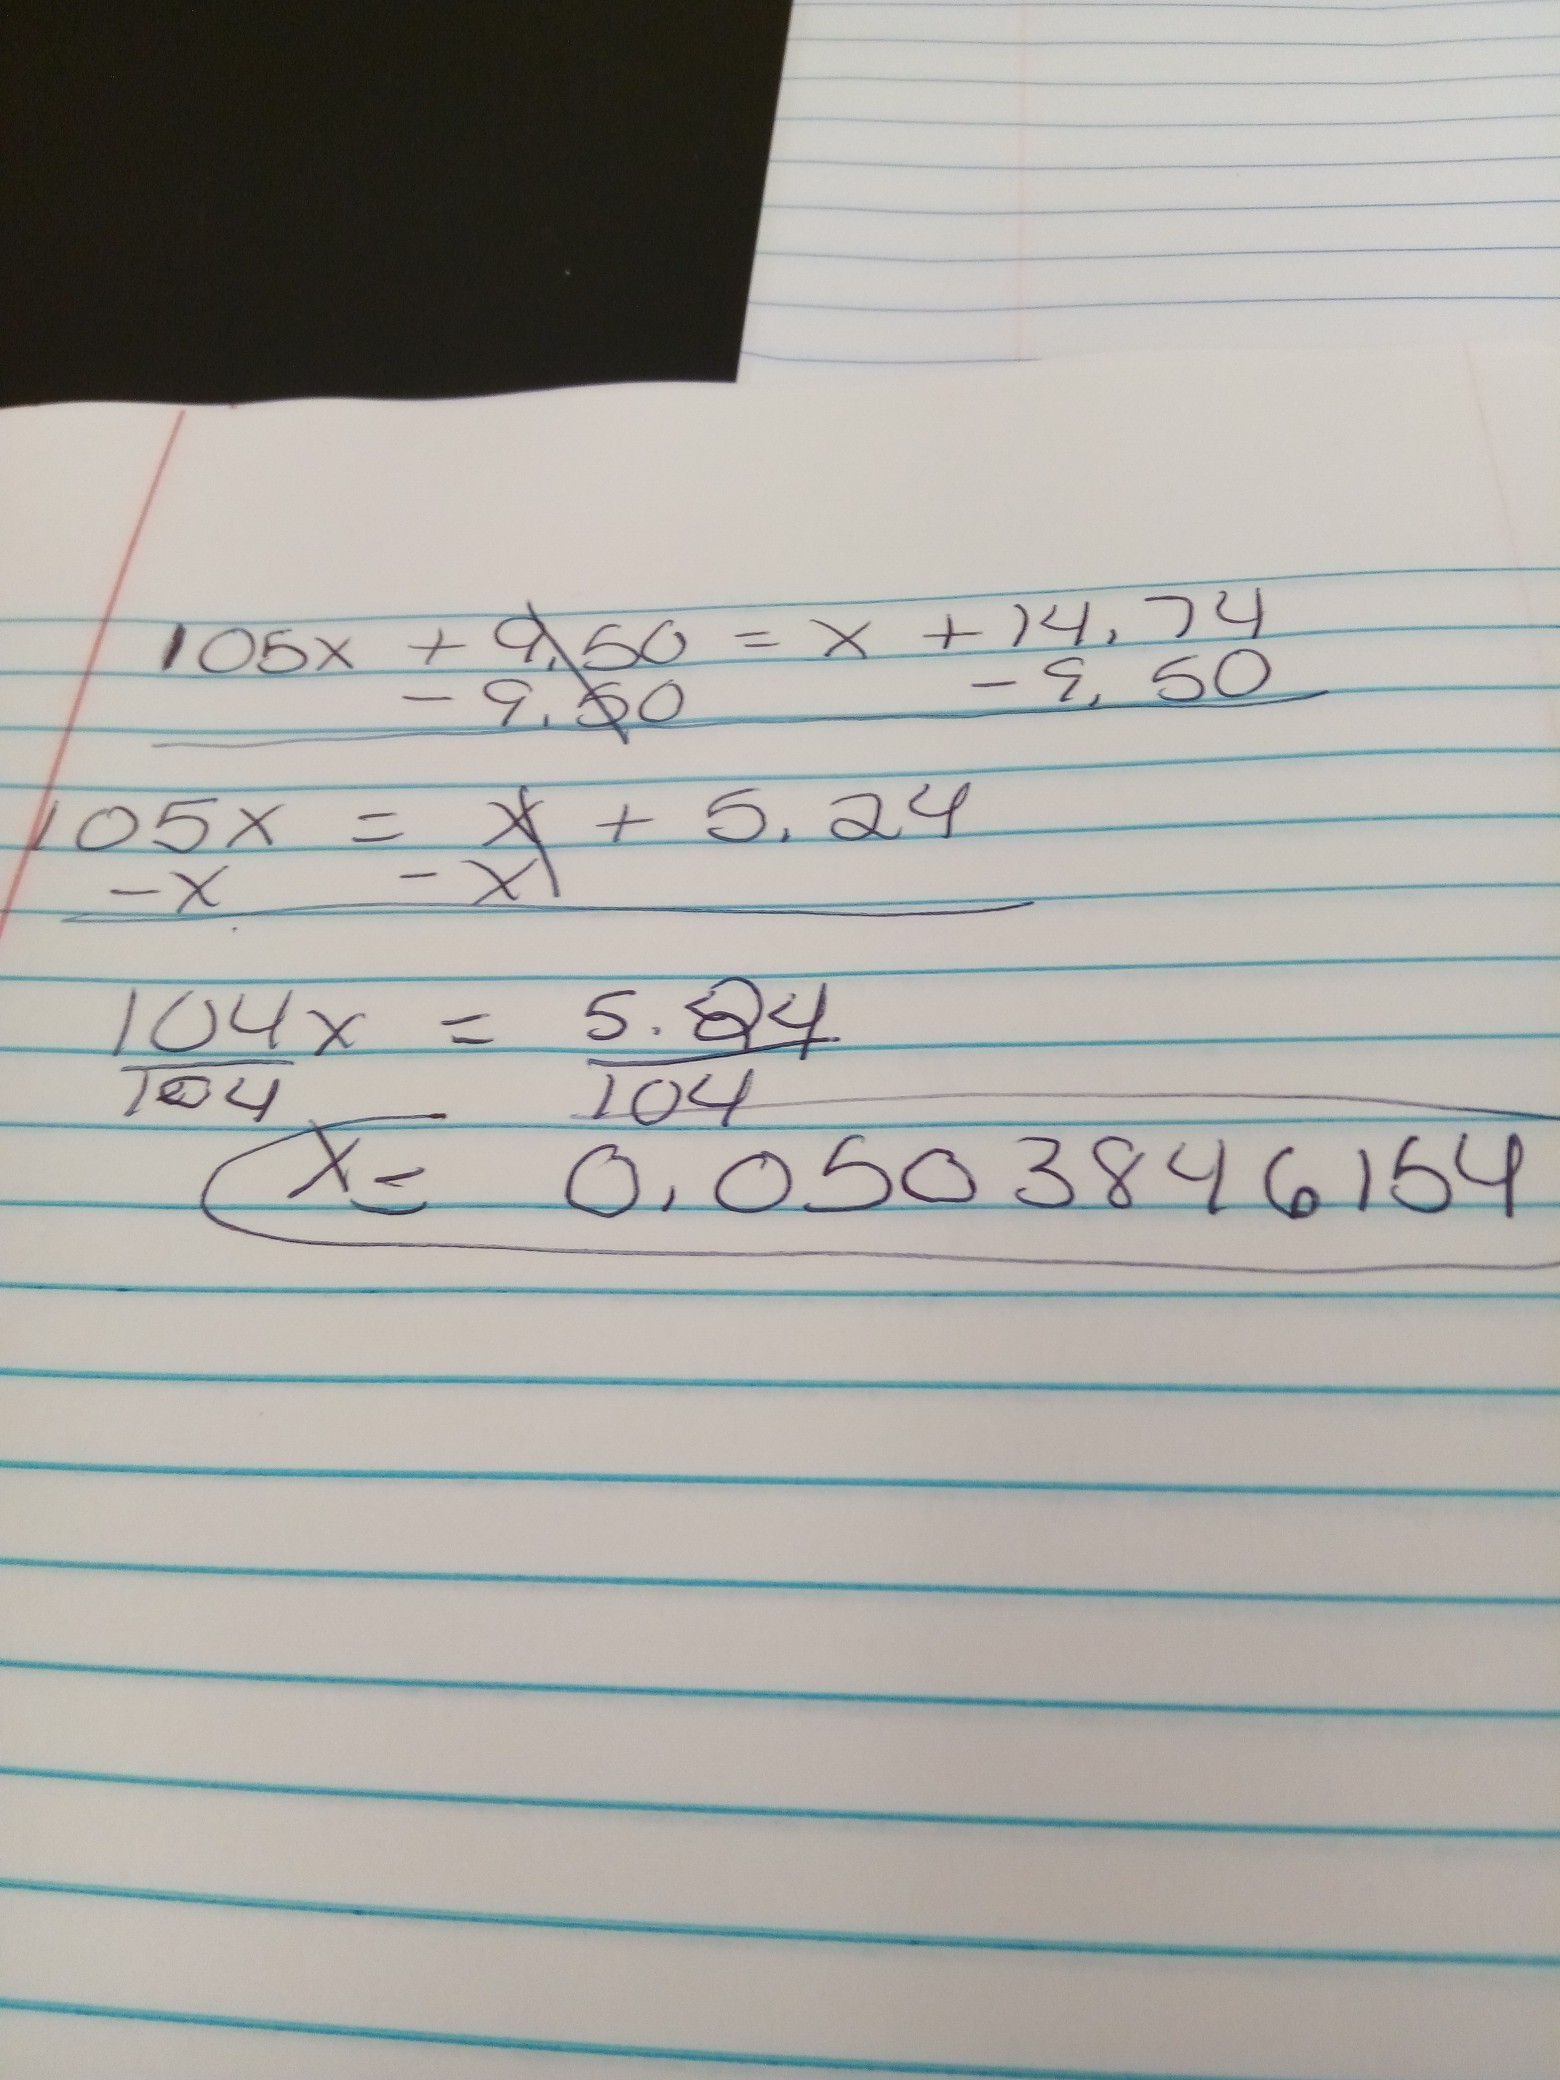 105x + 9.50 = x + 14.74
- 9.50 - 9.50
105x = x + 5.24
- x - x
104x = 5.24
104 104
x = 0.0503846154